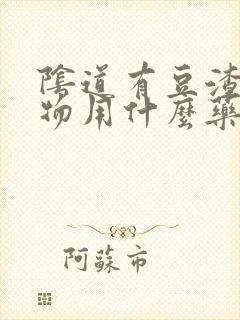 陰道有豆渣
物用什麼藥
阿蘇市